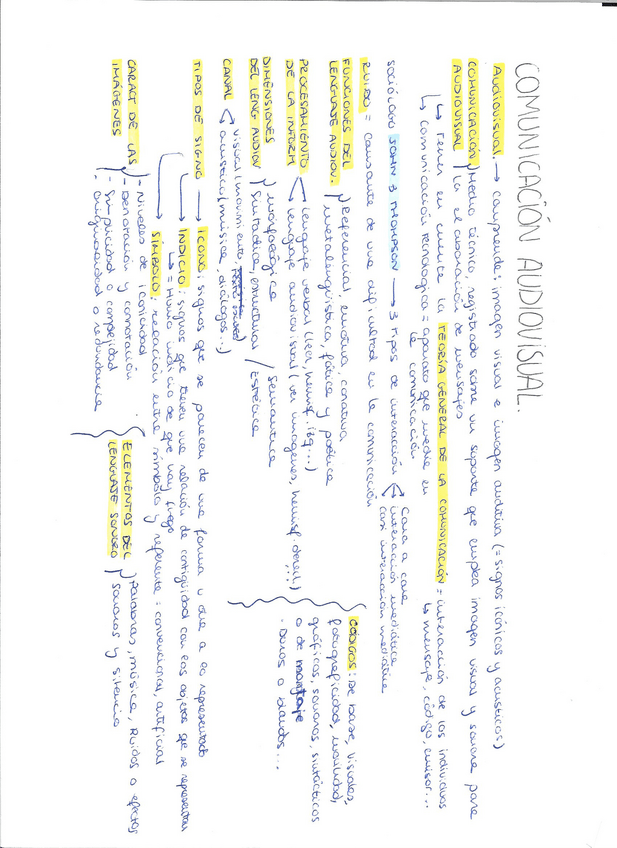 COMUNICACIÓN AUDIOVISUAL.
Audiovisual → comprende: imagen visual e imagen auditiva (= signos icónicos y acústicos)
COMUNICACIÓN AUDIOVISUAL } Medio técnico, registrado sobre un soporte que emplea imagen visual y sonora para
la elaboración de mensajes
↳ Tener en cuenta la TEORÍA GENERAL DE LA COMUNICACIÓN = interacción de los individuos
↳ mensaje, código, emisor...
↳ comunicación tecnológica = aparato que media en
la comunicación
SOCIÓLOGO JOHN B THOMPSON → 3 tipos de interacción
Cara a cara
interacción mediática
casi interacción mediática
RUIDO = causante de una dificultad en la comunicación
FUNCIONES DEL LENGUAJE AUDIOV. } Referencial, emotiva, conativa
metalingüística, fática y poética
PROCESAMIENTO DE LA INFORM
Lenguaje verbal (leer, hemisf. izq...)
Lenguaje audiovisual (ver imagenes, hemisf. derech...)
DIMENSIONES DEL LENG AUDIOV } Morfológica / Semántica
Sintáctica, estructural / Estética
CANAL
visual (movimiento,
acústico (música, diálogos...)
CÓDIGOS: De base, visuales,
fotograficidad, movilidad,
gráficos, sonoros, sintácticos
o de montaje
· Duros o blandos...
TIPOS DE SIGNO → ICONO: signos que se parecen de una forma u otra a lo representado
→ INDICIO: signos que tienen una relación de contigüidad con los objetos que se representan
↳ = Humo indicio de que hay fuego
→ SÍMBOLO: relación entre símbolo y referente = convencional, artificial
CARACT DE LAS IMÁGENES
- Niveles de iconicidad
- Denotación y connotación
- Simplicidad o complejidad
- Originalidad o redundancia
ELEMENTOS DEL LENGUAJE SONORO } Palabras, música, Ruidos o efectos
sonoros y silencio